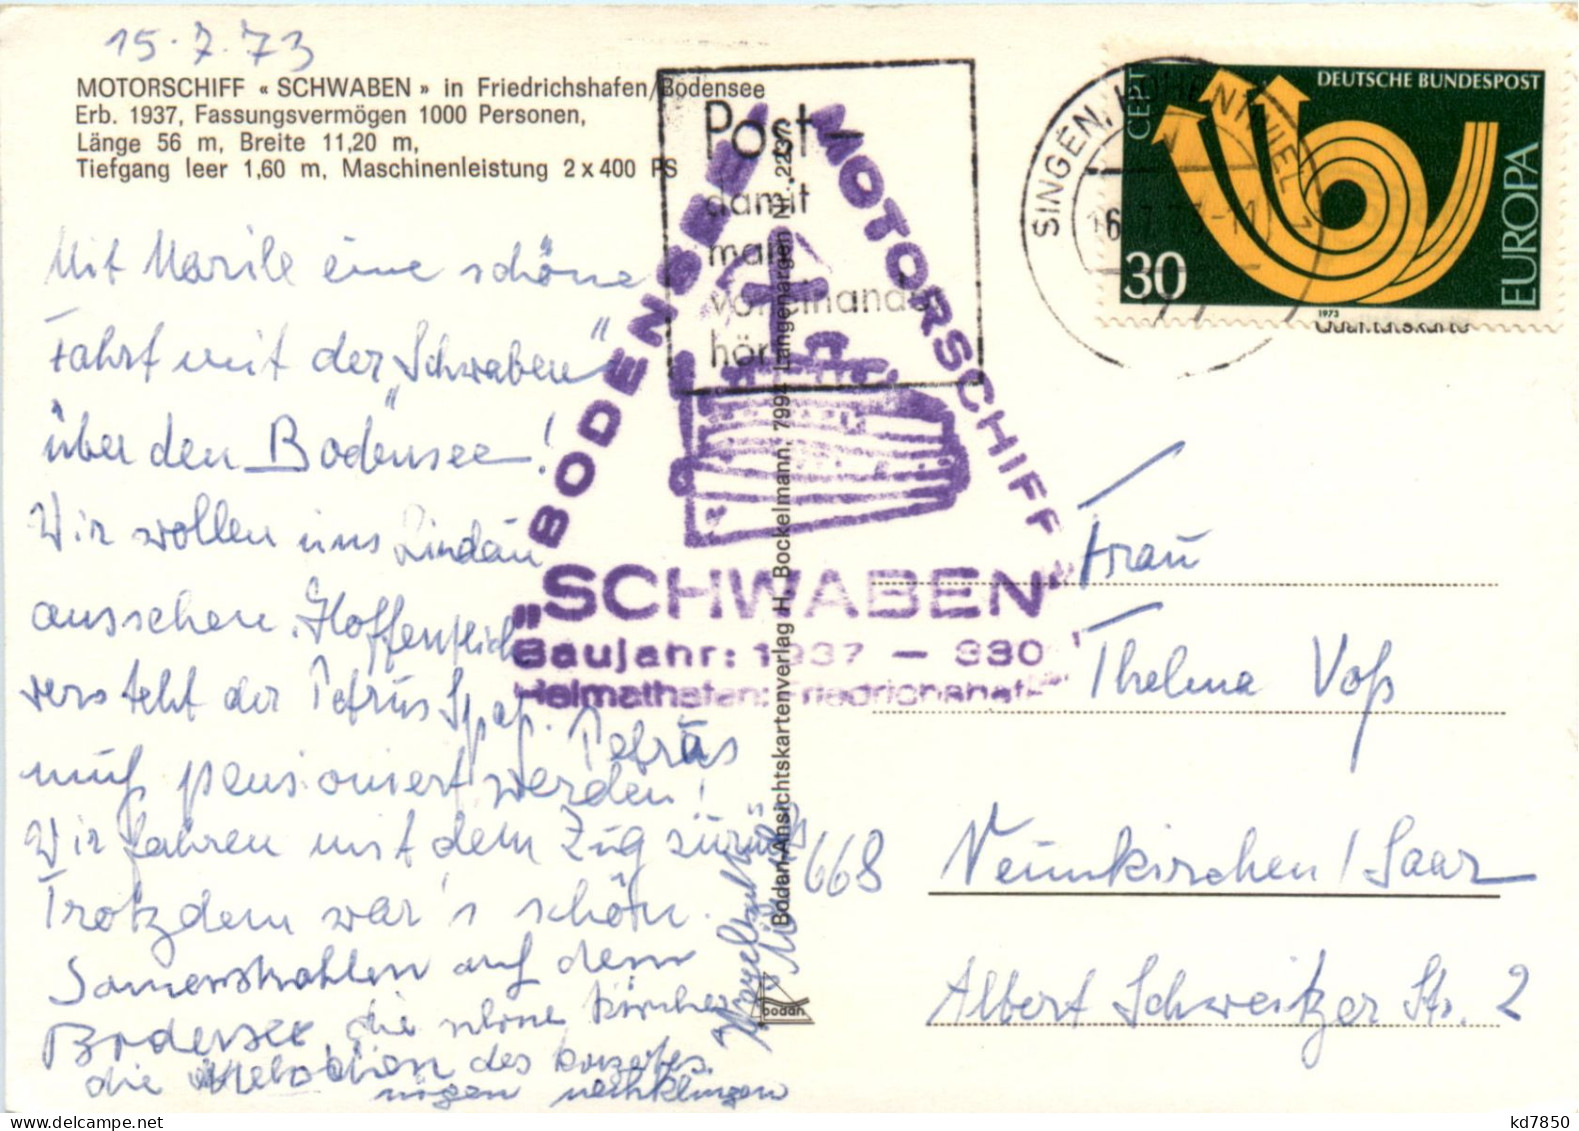 15.7.73
MOTORSCHIFF « SCHWABEN » in Friedrichshafen/Bodensee
Erb. 1937, Fassungsvermögen 1000 Personen,
Länge 56 m, Breite 11,20 m,
Tiefgang leer 1,60 m, Maschinenleistung 2 x 400 PS
Mit Marile eine schöne
Fahrt mit der „Schwaben"
über den Bodensee!
Wir wollen uns Lindau
ansehen. Hoffentlich
versteht der Petrus Spaß. Petrus
muß pensioniert werden!
Wir fahren mit dem Zug zurück
Trotzdem war's schön.
Sonnenstrahlen auf dem
Bodensee, die schöne
die Melodien des Konzertes.
mögen nachklingen
Post-
damit
man
voneinander
hört
BODENSEE-MOTORSCHIFF
„SCHWABEN"
Baujahr: 1937 – 930
Heimathafen: Friedrichshafen
Bodan-Ansichtskartenverlag H. Bockelmann, 7994 Langenargen Nr. 2237
bodan
SINGEN, HOHENTWIEL 1
16.7.73-11
DEUTSCHE BUNDESPOST
CEPT
EUROPA
30
1973
Qualitätskarte
Frau
Thelma Voß
668 Neunkirchen/Saar
Albert Schweitzer Str. 2
kd7850